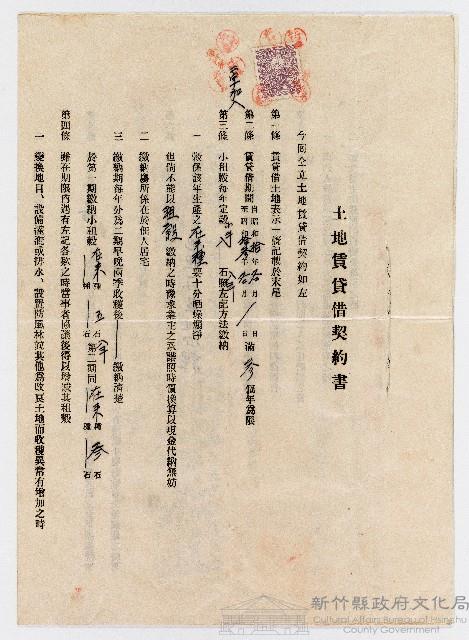 土地賃貸借契約書
今回仝立土地賃貸借契約如左
第一條 賃貸借土地表示一號記載於末尾
第二條 賃貸借期間 自昭和拾年 月 日 至昭和 年 月 日 滿參個年為限
第三條 小租穀每年定額 石照左記方法繳納
一 穀係該年生產之在來種要十分晒燥煽淨
但倘不能以租穀繳納之時豫求業主之承諾照時價換算以現金代納無妨
二 繳納場所係在於個人居宅
三 繳納期每年分為二期早晚兩季收穫後 繳納清楚
於第一期繳納小租穀在來種 五石 第二期同在來種 參石
第四條 雖在期限內遇有左記各款之時當事者協議後得以增減其租穀
一 變換地目、設備灌溉或排水、設置防風林並其他為改良土地而收穫異常有增加之時
新竹縣政府文化局
Cultural Affairs Bureau of Hsinchu
County Government